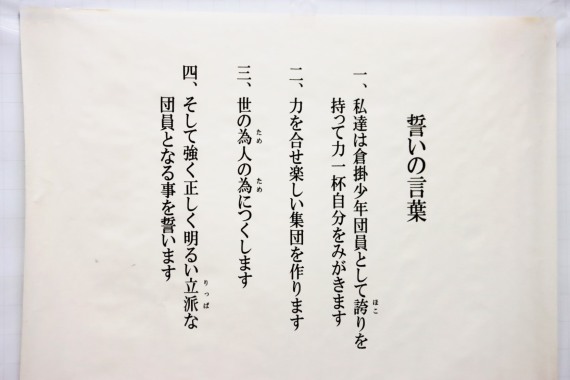 誓いの言葉
一、私達は倉掛少年団員として誇りを
持って力一杯自分をみがきます
二、力を合せ楽しい集団を作ります
三、世の為人の為につくします
四、そして強く正しく明るい立派な
団員となる事を誓います